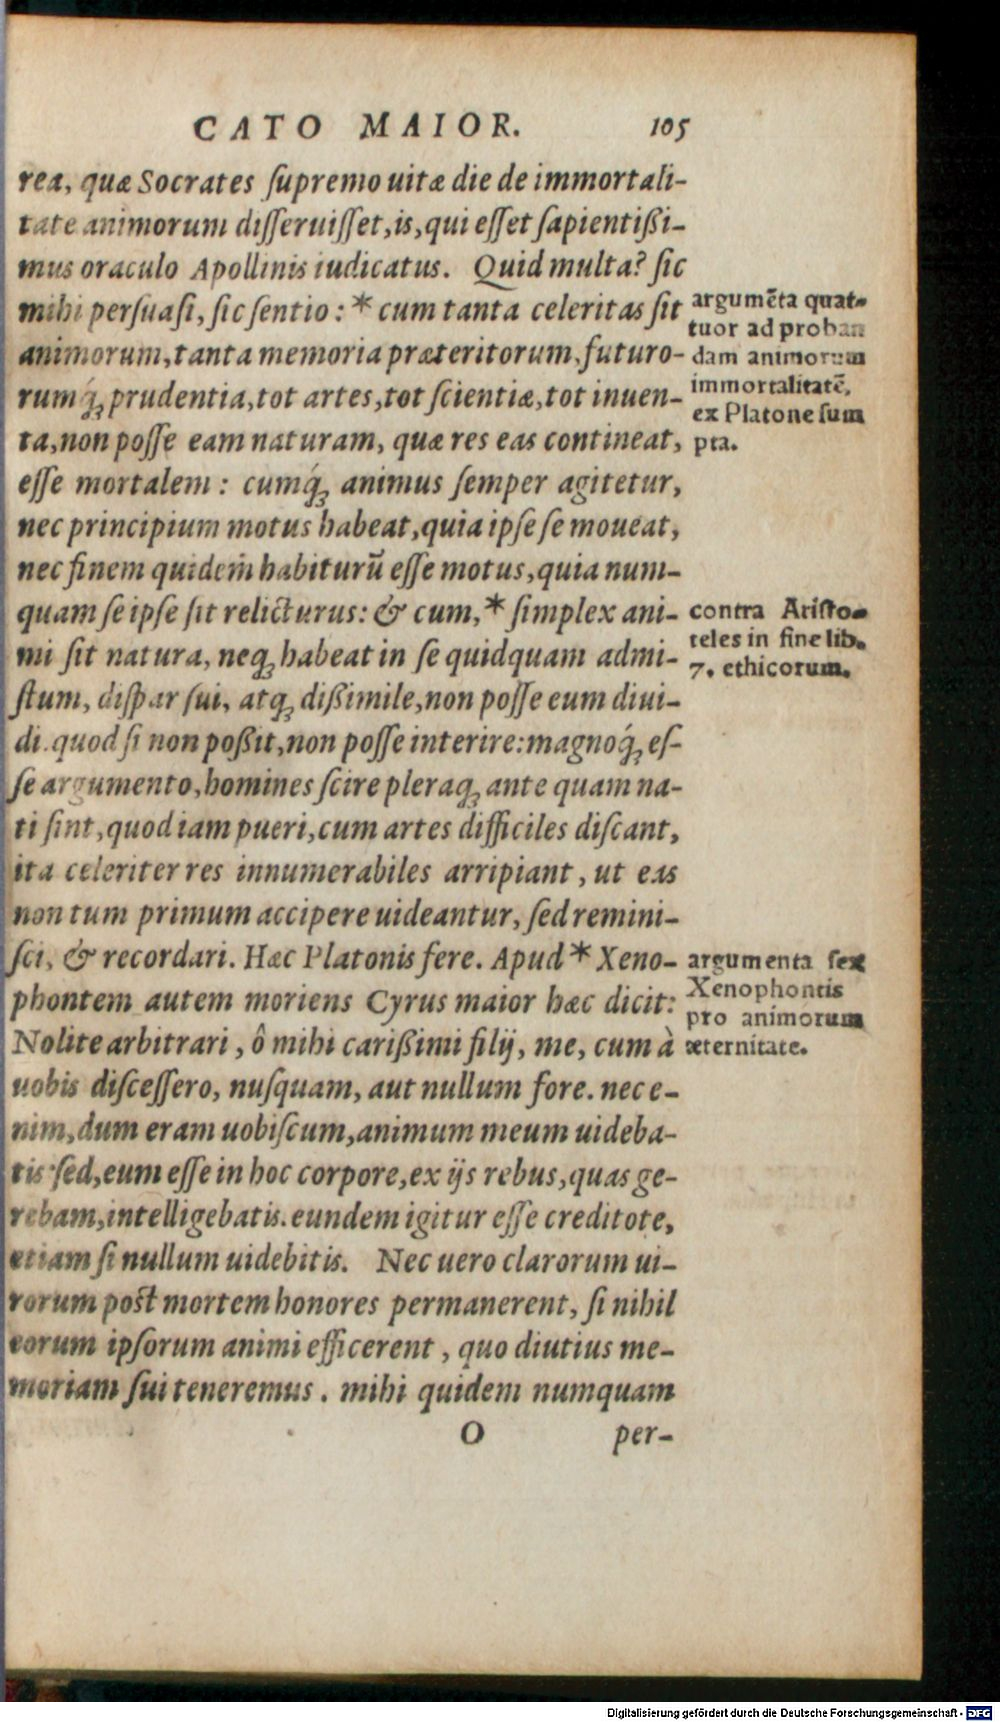 CATO MAIOR. 105
rea, quæ Socrates ſupremo uitæ die de immortali-
tate animorum diſſeruiſſet, is, qui eſſet ſapientißi-
mus oraculo Apollinis iudicatus. Quid multa? ſic
mihi perſuaſi, ſic ſentio: * cum tanta celeritas ſit
animorum, tanta memoria præteritorum, futuro-
rumq́; prudentia, tot artes, tot ſcientiæ, tot inuen-
ta, non poſſe eam naturam, quæ res eas contineat,
eſſe mortalem: cumq́; animus ſemper agitetur,
nec principium motus habeat, quia ipſe ſe moueat,
nec finem quidem habiturū eſſe motus, quia num-
quam ſe ipſe ſit relicturus: & cum, * ſimplex ani-
mi ſit natura, neq; habeat in ſe quidquam admi-
ſtum, diſpar ſui, atq; dißimile, non poſſe eum diui-
di. quod ſi non poßit, non poſſe interire: magnoq́; eſ-
ſe argumento, homines ſcire pleraq; ante quam na-
ti ſint, quod iam pueri, cum artes difficiles diſcant,
ita celeriter res innumerabiles arripiant, ut eas
non tum primum accipere uideantur, ſed remini-
ſci, & recordari. Hæc Platonis fere. Apud * Xeno-
phontem autem moriens Cyrus maior hæc dicit:
Nolite arbitrari, ô mihi carißimi filij, me, cum à
uobis diſceſſero, nuſquam, aut nullum fore. nec e-
nim, dum eram uobiſcum, animum meum uideba-
tis: ſed, eum eſſe in hoc corpore, ex ijs rebus, quas ge-
rebam, intelligebatis. eundem igitur eſſe creditote,
etiam ſi nullum uidebitis. Nec uero clarorum ui-
rorum poſt mortem honores permanerent, ſi nihil
eorum ipſorum animi efficerent, quo diutius me-
moriam ſui teneremus. mihi quidem numquam
O per-
argumēta quat-
tuor ad proban
dam animorum
immortalitatē,
ex Platone ſum
pta.
contra Ariſto-
teles in fine lib.
7. ethicorum.
argumenta ſex
Xenophontis
pro animorum
æternitate.
Digitalisierung gefördert durch die Deutsche Forschungsgemeinschaft - DFG